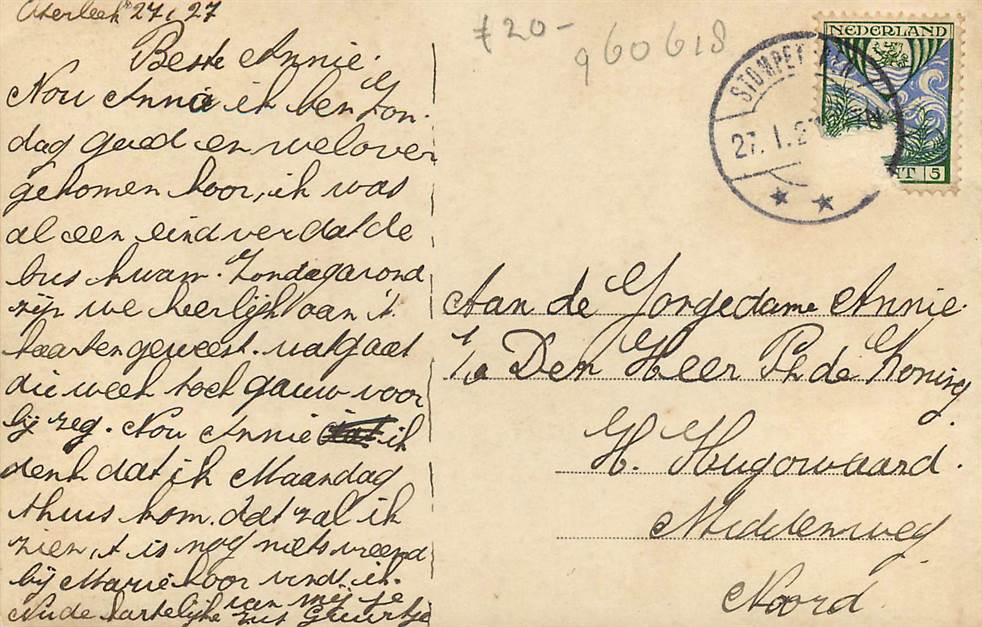 Oterleek 27/1 27
Beste Annie.
Nou Annie ik ben Zon-
dag goed en wel over
gekomen hoor, ik was
al een eind verdat de
bus kwam. Zondagavond
zijn we heerlijk aan 't
kaarten geweest. wat gaat
die week toch gauw voor
bij zeg. Nou Annie ik
denk dat ik Maandag
thuis kom. dat zal ik
zien, t is nog niets vreemd
bij Marie hoor vindt ik.
Nu de hartelijke van mij je
zus Geurtje
≠20-
960618
NEDERLAND
NT 5
STOMPET
27.1.27
Aan de Jongedame Annie.
p/a Den Heer P. de Koning
H. Hugowaard.
Middenweg
Noord